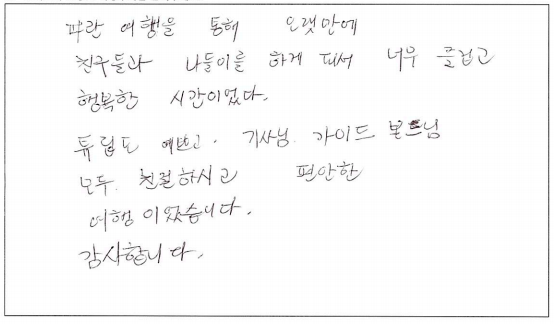 파란 여행을 통해 오랫만에
친구들과 나들이를 하게 되서 너무 즐겁고
행복한 시간이었다.
튜립도 예쁘고. 기사님. 가이드
모두. 친절하시고 편안한
여행이었습니다.
감사합니다.